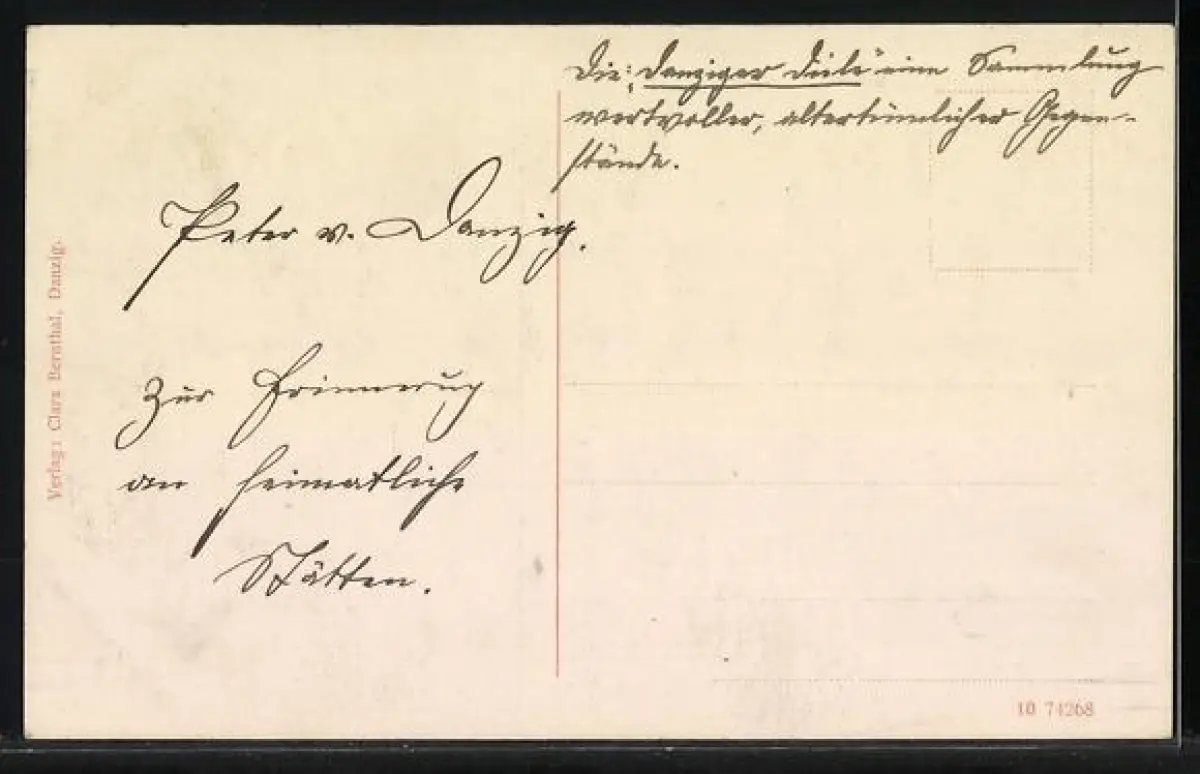 Die: „Danziger Diele“ eine Sammlung
wertvoller, altertümlicher Gegen-
stände.
Peter v. Danzig.
Zur Erinnerug
an heimatliche
Stätten.
Verlag: Clara Bernthal, Danzig.
10 74268